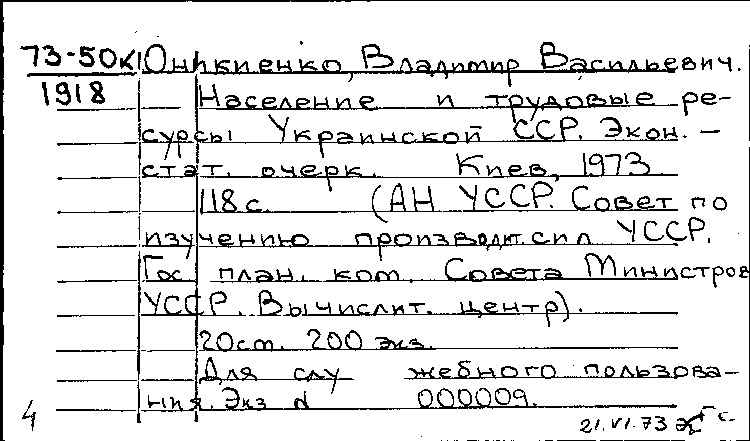 73-50к Оникиенко, Владимир Васильевич.
1918
Население и трудовые ре-
сурсы Украинской ССР. Экон. –
стат. очерк. Киев, 1973.
118 с. (АН УССР. Совет по
изучению производит. сил УССР.
Гос. план. ком. Совета Министров
УССР. Вычислит. центр).
20см. 200 экз.
Для слу жебного пользова-
ния. Экз N 000009.
4
21.VI.73